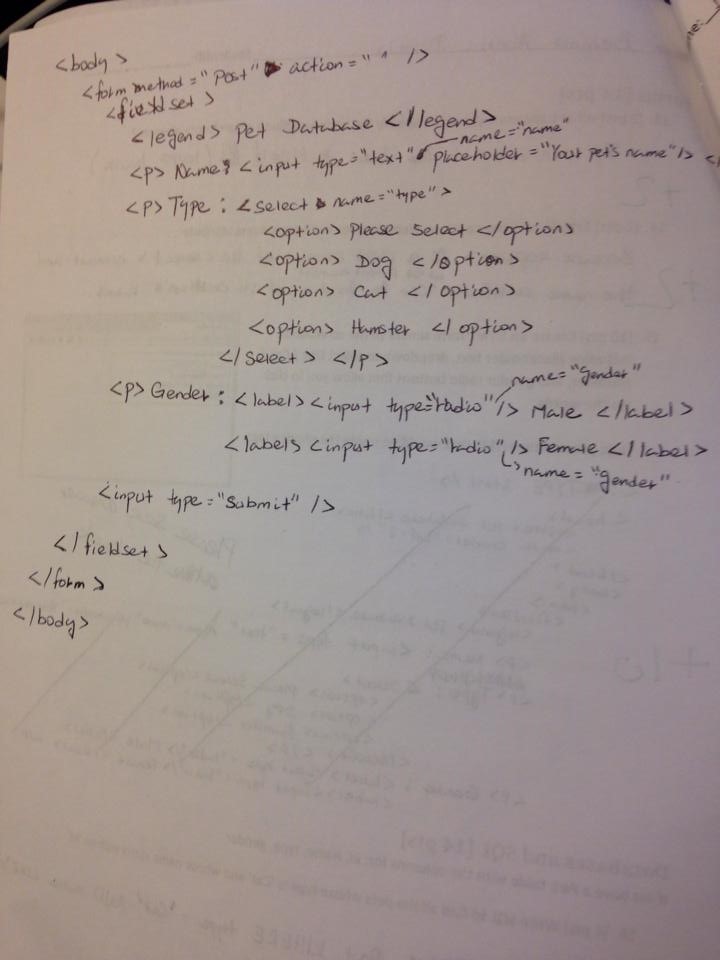 <body>
<form method="Post" action=" " />
<fieldset>
<legend> Pet Database </legend>
name="name"
<p> Name: <input type="text" placeholder="Your pet's name"/> </
<p> Type : <select name="type">
<option> Please Select </option>
<option> Dog </option>
<option> Cat </option>
<option> Hamster </option>
</select> </p>
name="gender"
<p> Gender : <label> <input type="radio" /> Male </label>
<label> <input type="radio" /> Female </label>
name = "gender"
<input type="Submit" />
</fieldset>
</form>
</body>